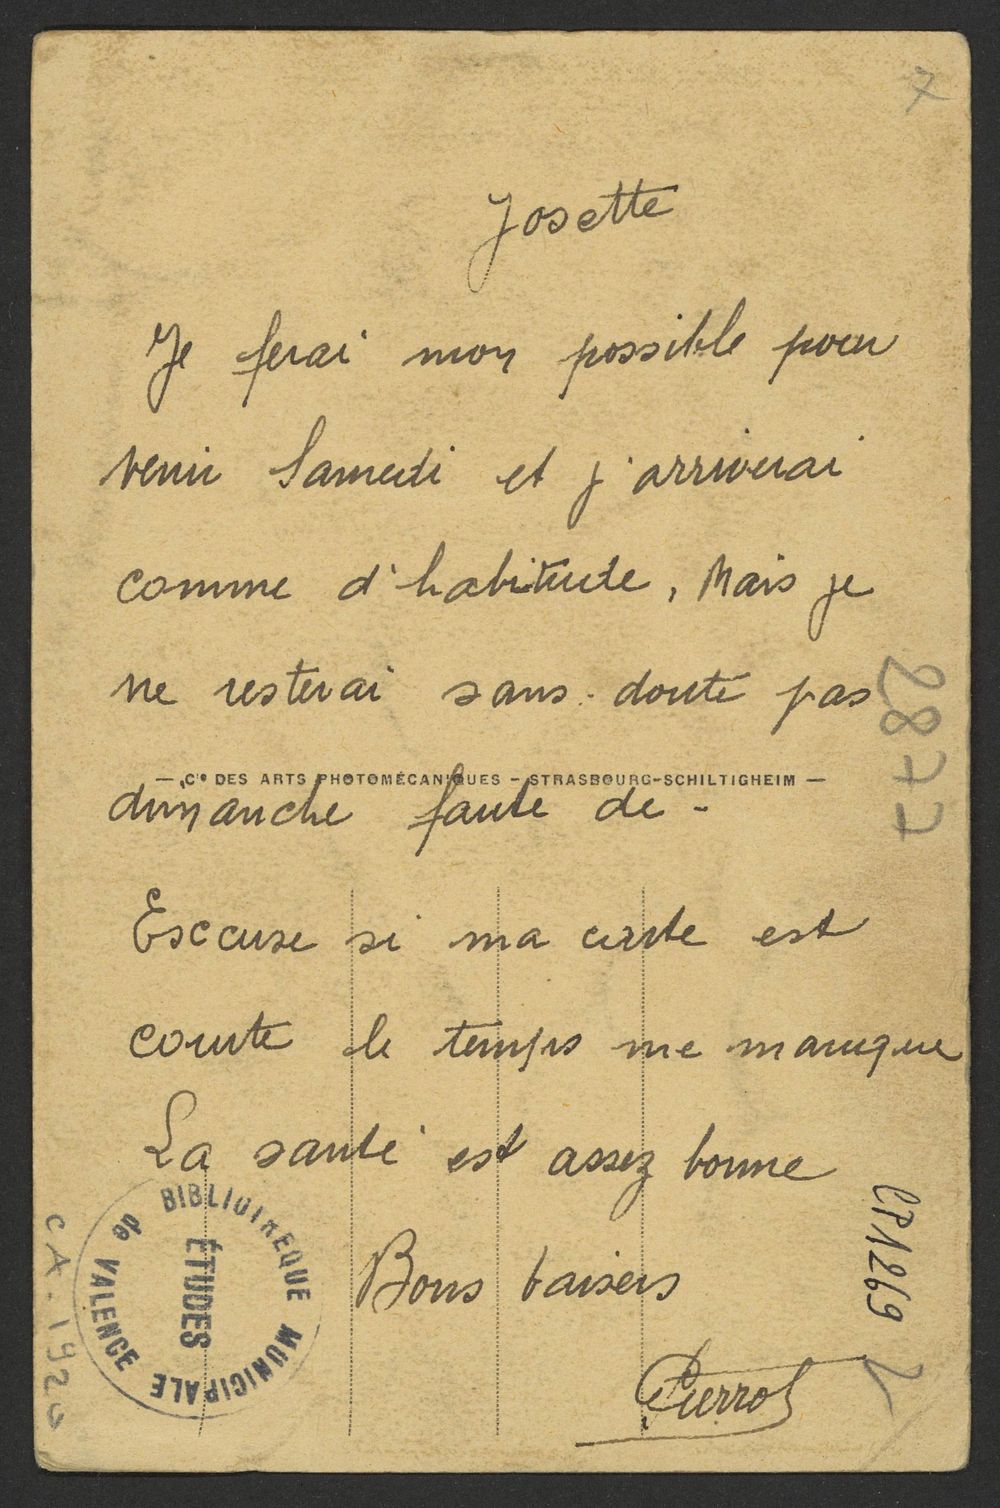 7
Josette
Je ferai mon possible pour
venir Samedi et j'arriverai
comme d'habitude, Mais je
ne resterai sans doute pas
2877
— Cie DES ARTS PHOTOMÉCANIQUES - STRASBOURG-SCHILTIGHEIM —
dimanche faute de -
Esccuse si ma carte est
courte le temps me manque
La santé est assez bonne
Bons baisers
Pierrot
BIBLIOTHEQUE MUNICIPALE
de VALENCE
ÉTUDES
CP1269